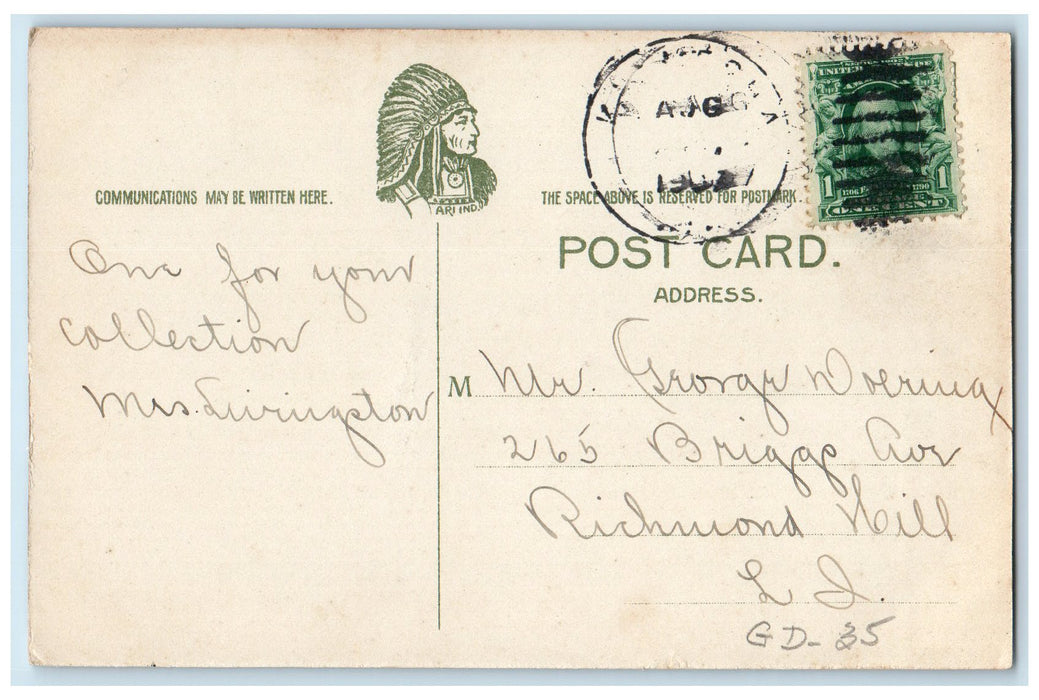 COMMUNICATIONS MAY BE WRITTEN HERE.
ARI IND.
THE SPACE ABOVE IS RESERVED FOR POSTMARK.
AUG
1907
UNITED
1 1706 1790 1
ONE CENT
POST CARD.
ADDRESS.
One for your
collection
Mrs. Livingston
M Mr. George Doering
265 Briggs Ave
Richmond Hill
L I.
GD-35